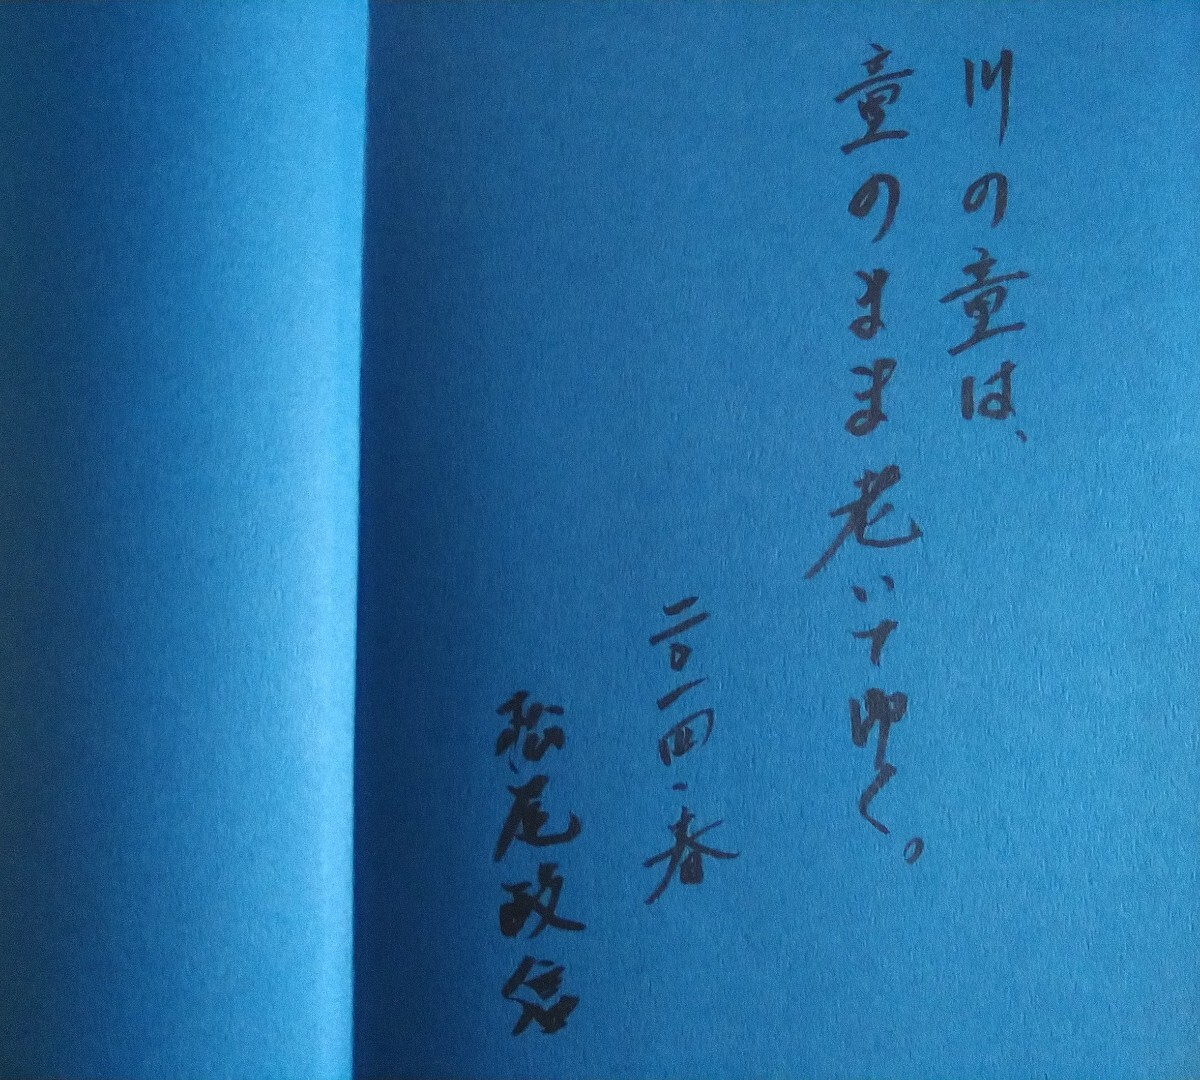 川の童は、
童のまま老いてゆく。
二〇一四・春
松尾政信